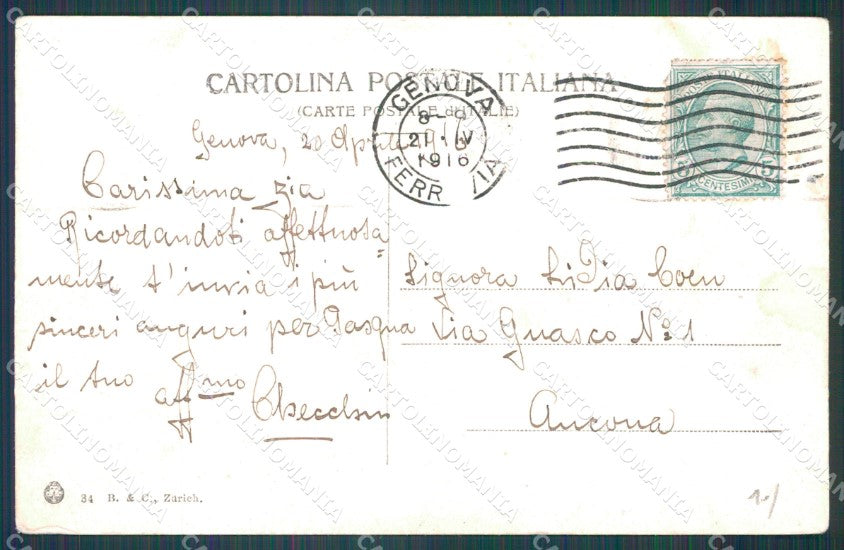 CARTOLINA POSTALE ITALIANA
(CARTE POSTALE d'ITALIE)
GENOVA
8-9
21·IV
1916
FERROVIA
POSTE ITALIANE
5 5
CENTESIMI
Genova, 20 Aprile
Carissima zia
Ricordandoti affettuosa=
mente t'invia i più
sinceri auguri per Pasqua
il tuo
aff.mo Checchin
Signora Lidia Coen
Via Guasco Nº 1
Ancona
34 B. & C., Zürich.
CARTOLINOMANIA